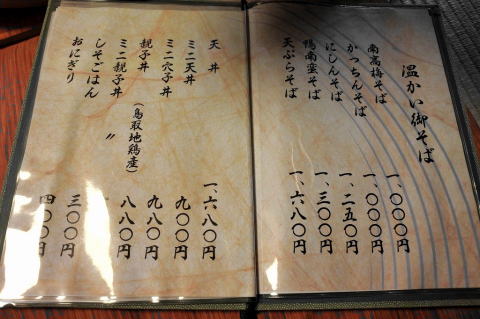 温かい御そば
南高梅そば 一、〇〇〇円
かっちんそば 一、〇〇〇円
にしんそば 一、二五〇円
鴨南蛮そば 一、三〇〇円
天ぷらそば 一、六八〇円
天丼 一、六八〇円
ミニ天丼 九〇〇円
ミニ穴子丼 九〇〇円
親子丼 (鳥取地鶏産) 九八〇円
ミニ親子丼 〃 八八〇円
しそごはん 三〇〇円
おにぎり 四〇〇円